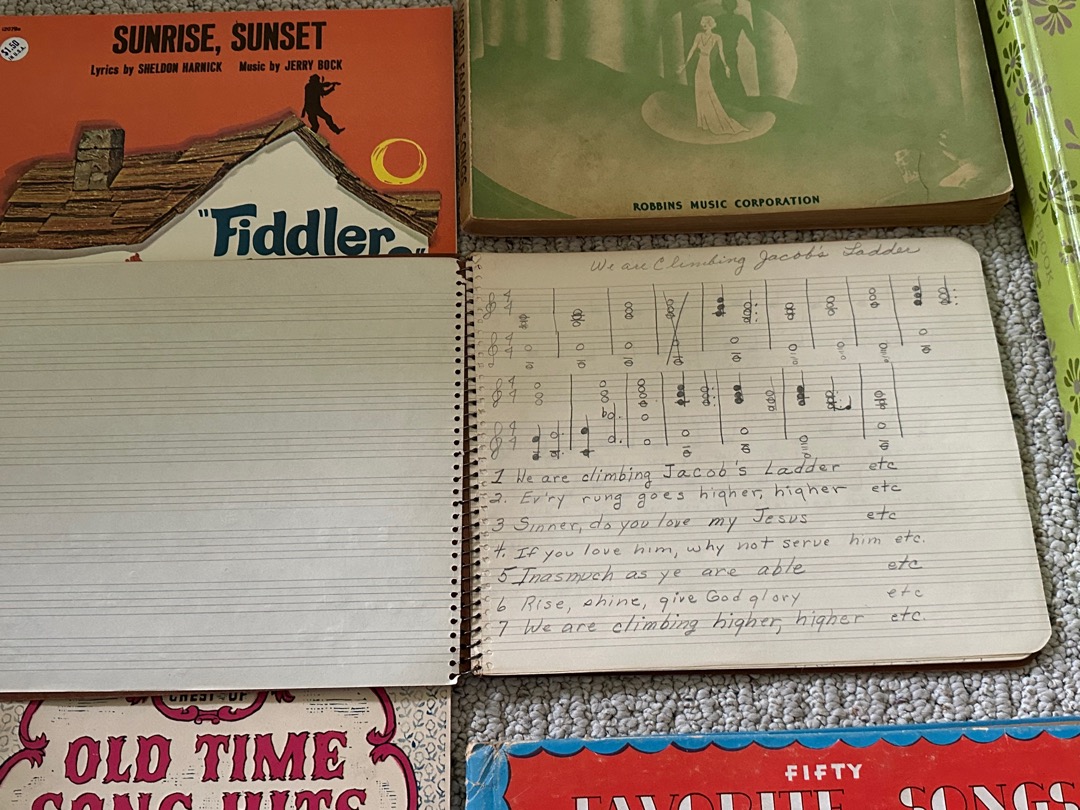 $1.50
IN U.S.A.
SUNRISE, SUNSET
Lyrics by SHELDON HARNICK Music by JERRY BOCK
"Fiddler
ROBBINS MUSIC CORPORATION
BOOK
We are Climbing Jacob's Ladder
4
4
4
4
4
4
4
4
1 We are climbing Jacob's Ladder etc
2. Ev'ry rung goes higher, higher etc
3 Sinner, do you love my Jesus etc
4. If you love him, why not serve him etc.
5 Inasmuch as ye are able etc
6 Rise, shine, give God glory etc
7 We are climbing higher, higher etc.
CHEST OF
OLD TIME
SONG HITS
FIFTY
FAVORITE SONGS